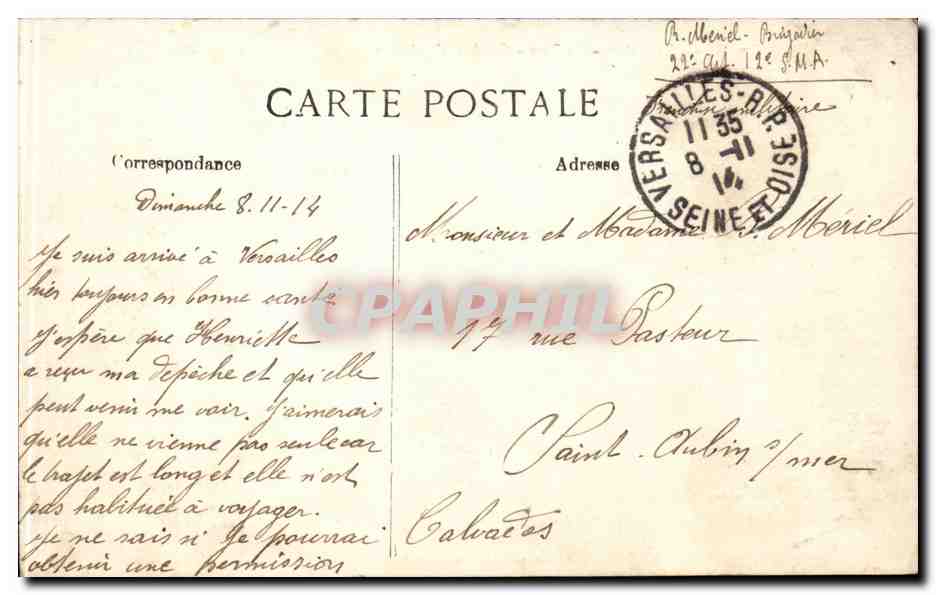 R. Mériel - Brigadier
22e Art. 12e S.M.A.
Franchise militaire
CARTE POSTALE
VERSAILLES - R.P. SEINE ET OISE
11 35
8 - 11
14
Correspondance
Adresse
Dimanche 8.11-14
Je suis arrivé à Versailles
hier toujours en bonne santé
J'espère que Henriette
a reçu ma depêche et qu'elle
peut venir me voir. J'aimerais
qu'elle ne vienne pas seule car
le trajet est long et elle n'est
pas habituée à voyager.
Je ne sais si je pourrai
obtenir une permission
Monsieur et Madame Mériel
17 rue Pasteur
Saint-Aubin s/mer
Calvados
CPAPHIL